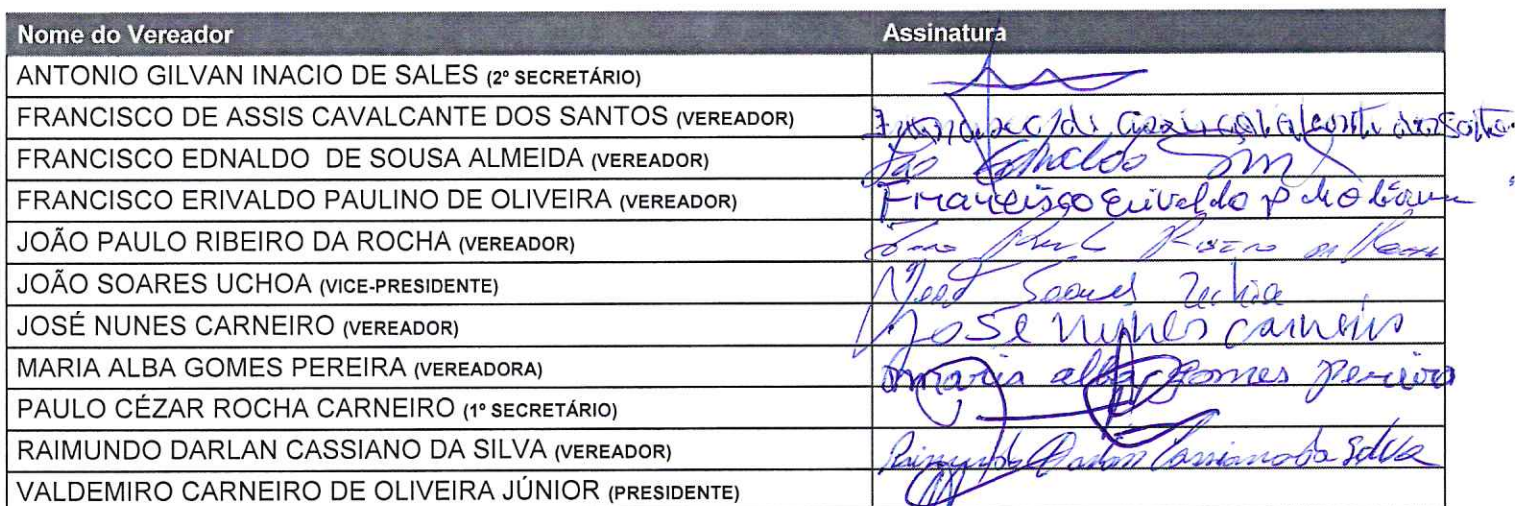 Nome do Vereador Assinatura
ANTONIO GILVAN INACIO DE SALES (2º SECRETÁRIO)
FRANCISCO DE ASSIS CAVALCANTE DOS SANTOS (VEREADOR)
FRANCISCO EDNALDO DE SOUSA ALMEIDA (VEREADOR) Ednaldo
FRANCISCO ERIVALDO PAULINO DE OLIVEIRA (VEREADOR) Francisco Erivaldo P
JOÃO PAULO RIBEIRO DA ROCHA (VEREADOR)
JOÃO SOARES UCHOA (VICE-PRESIDENTE) Soares Uchoa
JOSÉ NUNES CARNEIRO (VEREADOR) José Nunes Carneiro
MARIA ALBA GOMES PEREIRA (VEREADORA) maria alba gomes pereira
PAULO CÉZAR ROCHA CARNEIRO (1º SECRETÁRIO)
RAIMUNDO DARLAN CASSIANO DA SILVA (VEREADOR) Raimundo Darlan Cassiano da Silva
VALDEMIRO CARNEIRO DE OLIVEIRA JÚNIOR (PRESIDENTE)